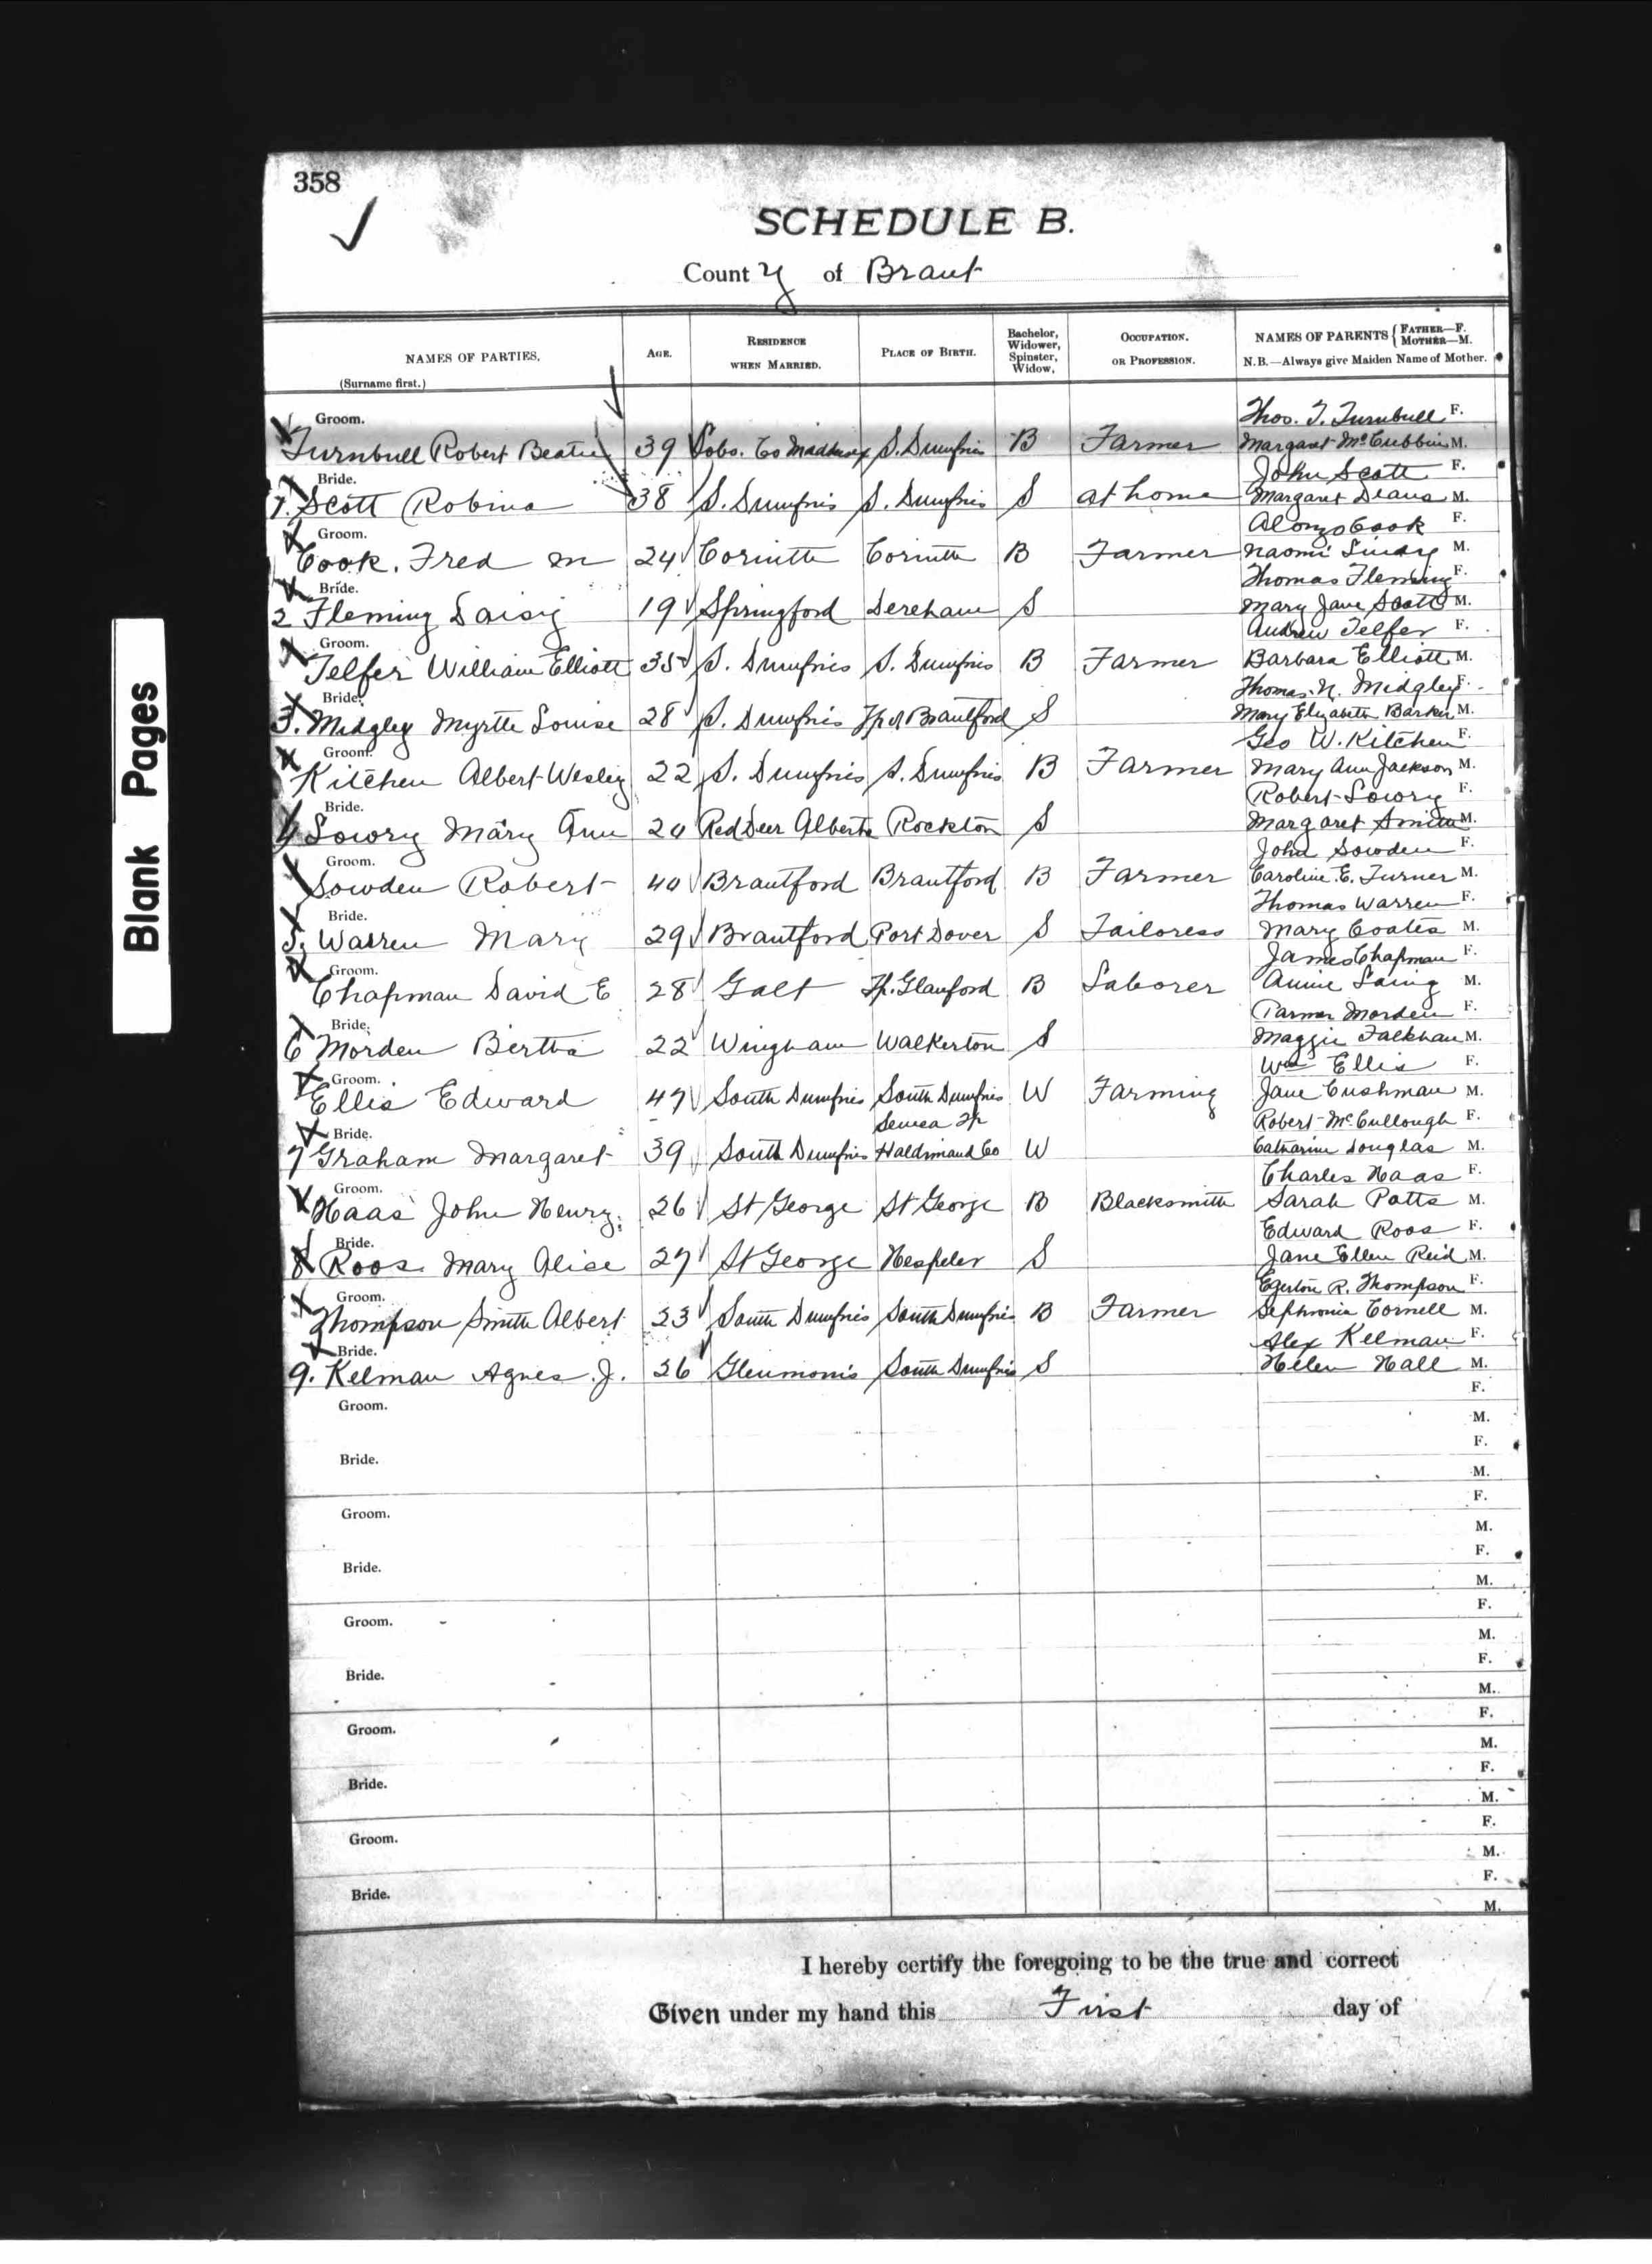 358
SCHEDULE B.
County of Brant
NAMES OF PARTIES. (Surname first.) AGE. RESIDENCE WHEN MARRIED. PLACE OF BIRTH. Bachelor, Widower, Spinster, Widow, OCCUPATION. OR PROFESSION. NAMES OF PARENTS { FATHER—F. MOTHER—M. N.B.—Always give Maiden Name of Mother.
Groom. Thos. T. Turnbull F.
Turnbull Robert Beattie 39 Lobo. Co Middlesex S. Dumfries B Farmer Margaret McCubbin M.
Bride. John Scott F.
1. Scott Robina 38 S. Dumfries S. Dumfries S at home Margaret Deans M.
Groom. Alonzo Cook F.
Cook. Fred M 24 Corinth Corinth B Farmer Naomi M.
Bride. Thomas Fleming F.
2 Fleming Daisy 19 Springford Dereham S Mary Jane Scott M.
Groom. Andrew Telfer F.
Telfer William Elliott 35 S. Dumfries S. Dumfries B Farmer Barbara Elliott M.
Bride. Thomas N. Midgley F.
3. Midgley Myrtle Louise 28 S. Dumfries Tp of Brantford S Mary Elizabeth Barker M.
Groom. Geo W. Kitchen F.
Kitchen Albert Wesley 22 S. Dumfries S. Dumfries B Farmer Mary Ann Jackson M.
Bride. Robert Lowry F.
4 Lowry Mary Ann 20 Red Deer Alberta Rockton S Margaret Smith M.
Groom. John Sowden F.
Sowden Robert 40 Brantford Brantford B Farmer Caroline. E. Turner M.
Bride. Thomas Warren F.
5. Warren Mary 29 Brantford Port Dover S Tailoress Mary Coates M.
Groom. James Chapman F.
Chapman David E 28 Galt Tp. Glanford B Laborer Annie Laing M.
Bride. Morden F.
6 Morden Bertha 22 Wingham Walkerton S Maggie M.
Groom. Wm Ellis F.
Ellis Edward 47 South Dumfries South Dumfries W Farming Jane Cushman M.
Bride. Seneca Tp Robert McCullough F.
7 Graham Margaret 39 South Dumfries Haldimand Co W Catharine Douglas M.
Groom. Charles Haas F.
Haas John Henry. 26 St George St George B Blacksmith Sarah Potts M.
Bride. Edward Roos F.
8 Roos Mary Alice 27 St George Hespeler S Jane Ellen Reid M.
Groom. Egerton R. Thompson F.
Thompson Smith Albert 23 South Dumfries South Dumfries B Farmer Sephronia Cornell M.
Bride. Alex Kelman F.
9. Kelman Agnes. J. 26 Glenmorris South Dumfries S Helen Hall M.
F.
Groom.
M.
F.
Bride.
M.
F.
Groom.
M.
F.
Bride.
M.
F.
Groom.
M.
F.
Bride.
M.
F.
Groom.
M.
F.
Bride.
M.
F.
Groom.
M.
F.
Bride.
M.
I hereby certify the foregoing to be the true and correct
Given under my hand this First day of
Blank Pages